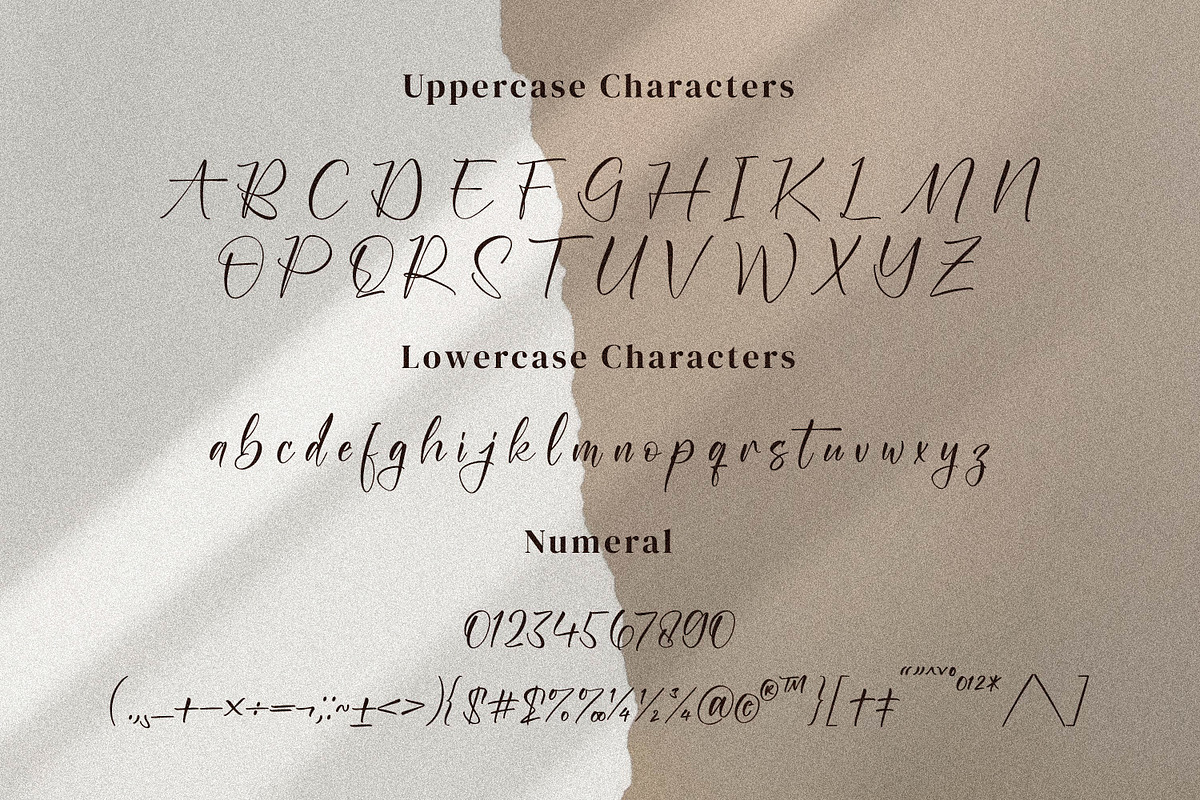 Uppercase Characters
A B C D E F G H I K L M N
O P Q R S T U V W X Y Z
Lowercase Characters
a b c d e f g h i j k l m n o p q r s t u v w x y z
Numeral
01234567890
(.,_+−×÷=¬;:~±<>){$#%‰¼½¾@©®™}[†‡“”^˅°012*/\]